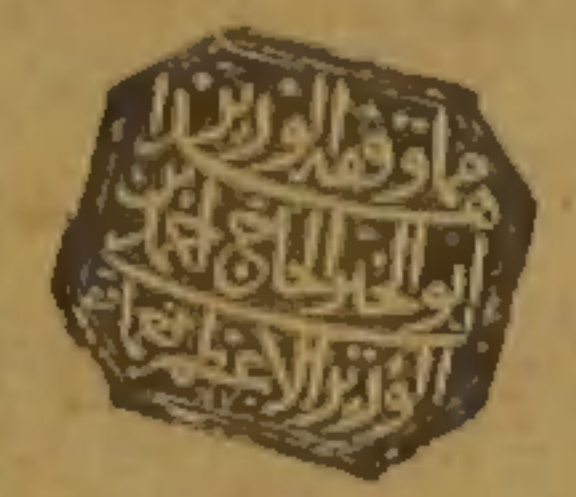 هذا ما وقفه الوزير
ابو الخير الحاج احمد بن
الوزير الاعظم نعمان